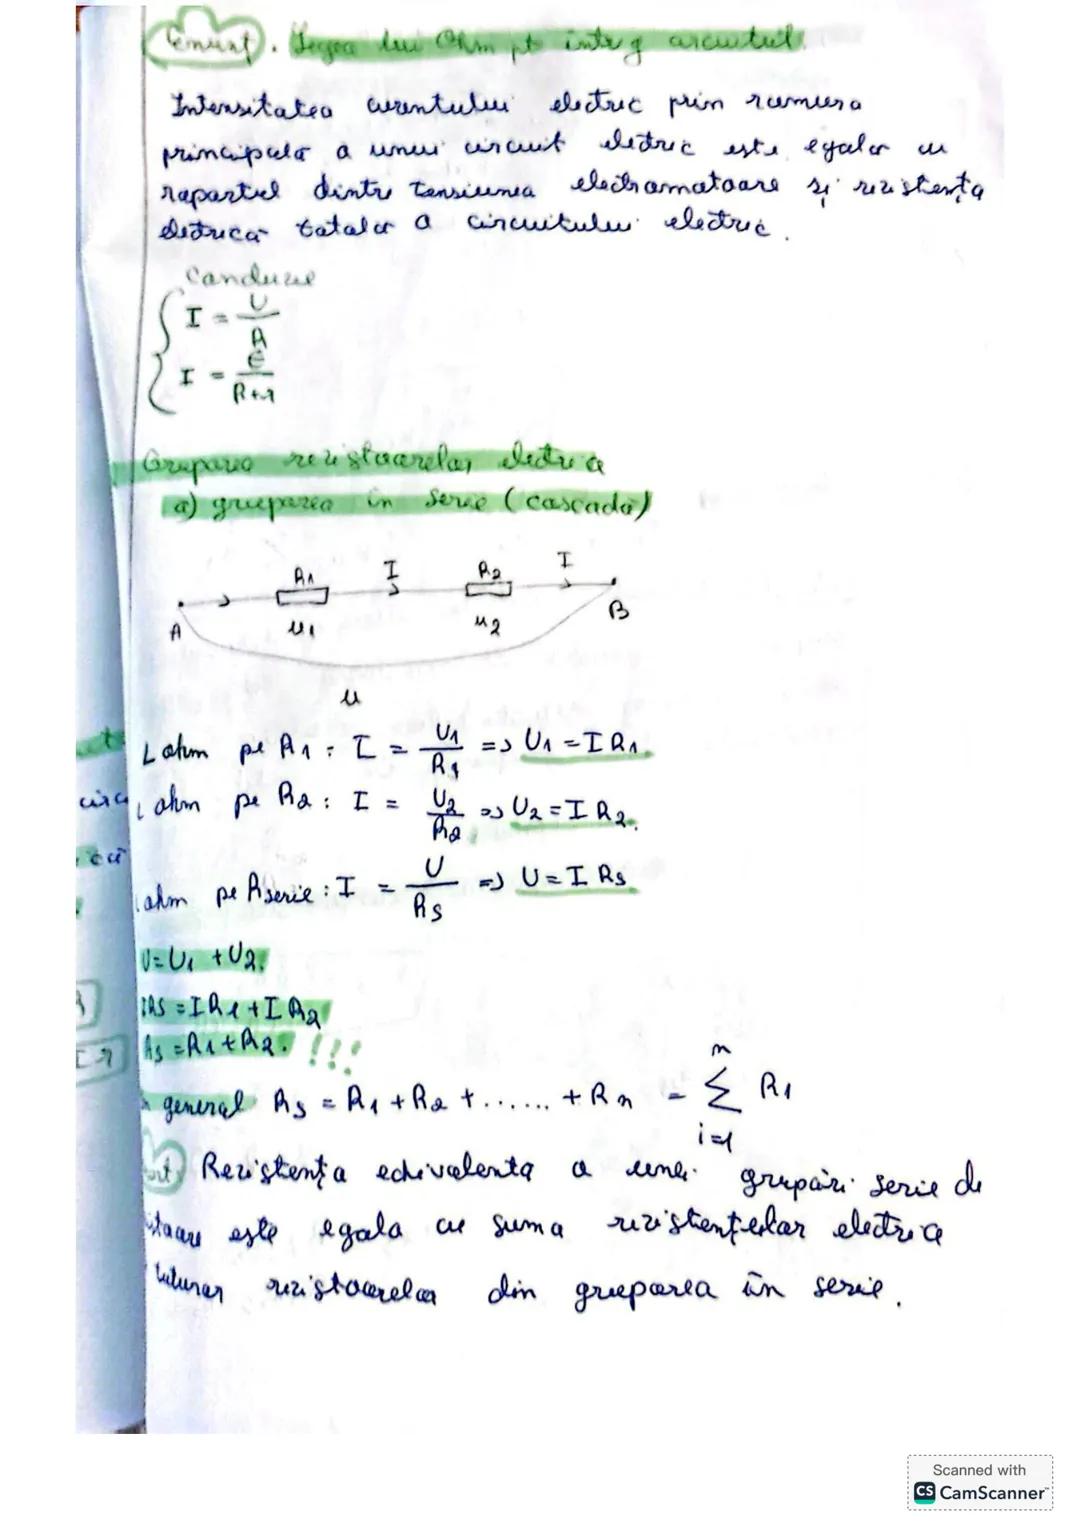 Enunț. Legea lui Ohm pt întreg circuitul.
Intensitatea curentului electric prin ramura
principală a unui circuit electric este egală cu
raportul dintre tensiunea electromotoare și rezistența
electrică totală a circuitului electric.
Concluzie
I = U/R
I = E/R+r
Gruparea rezistoarelor electrice
a) gruparea în serie (cascadă)
R1 I R2 I
A u1 u2 B
u
L ohm pe R1 : I = U1/R1 => U1 = I R1.
L ohm pe R2 : I = U2/R2 => U2 = I R2.
L ohm pe Rserie : I = U/Rs => U = I Rs
U = U1 + U2.
IRS = I R1 + I R2
Rs = R1 + R2. !!!
general Rs = R1 + R2 + ...... + Rn = n Σ i=1 R1
Rezistența echivalentă a unei grupări serie de
este egală cu suma rezistențelor electrice
tuturor rezistoarelor din gruparea în serie.
Scanned with
CS CamScanner